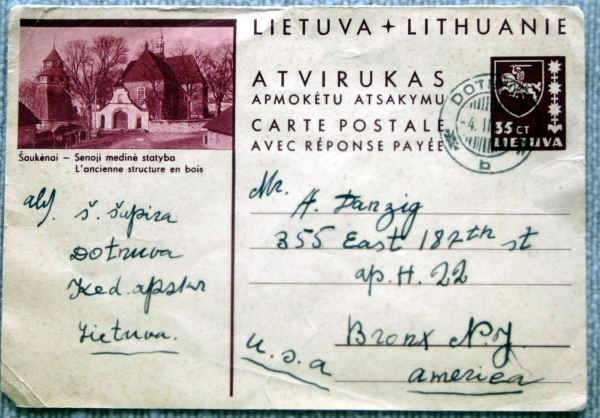 LIETUVA + LITHUANIE
ATVIRUKAS
APMOKĖTU ATSAKYMU
CARTE POSTALE
AVEC RÉPONSE PAYÉE
35 CT
LIETUVA
DOT
-4. II
b
Šaukėnai – Senoji medinė statyba
L'ancienne structure en bois
Š. Šapira
Dotnuva
Ked. apskr
Lietuva.
Mr. A. Danzig
355 East 187th st
ap. H. 22
Bronx N.Y.
U.S.A
America